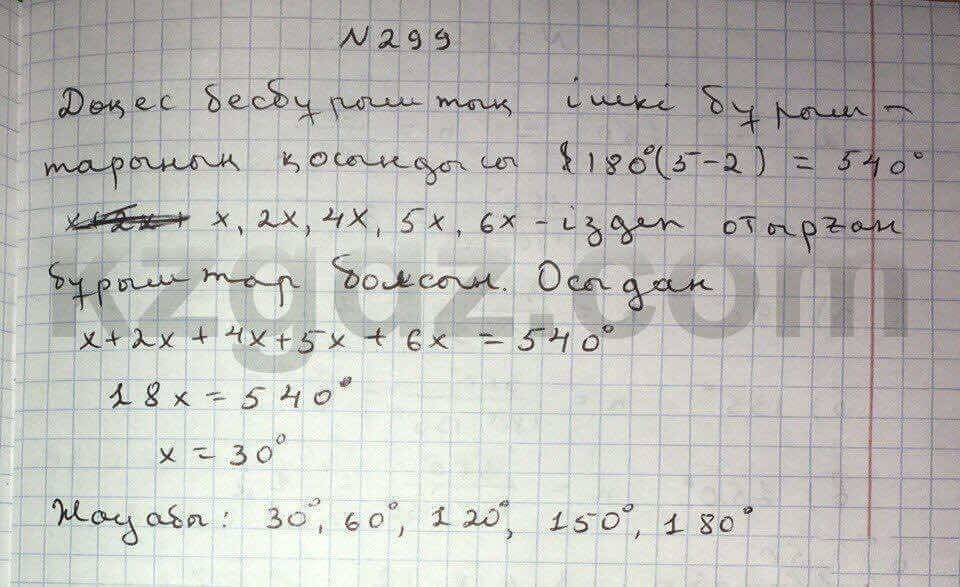 N299
Дөңес бесбұрыштың ішкі бұрыш-
тарының қосындысы 180°(5-2) = 540°
x, 2x, 4x, 5x, 6x - іздеп отырған
бұрыштар болсын. Осыдан
x+2x+4x+5x+6x = 540°
18x = 540°
x = 30°
Жауабы: 30°, 60°, 120°, 150°, 180°
kzgdz.com